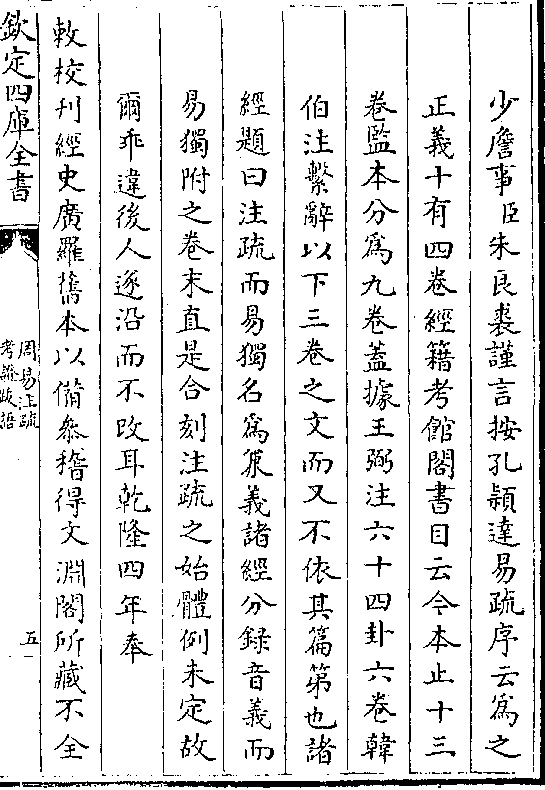 少詹事臣朱良裘謹言按孔頴達易疏序云為之
正義十有四卷經籍考館閣書目云今本止十三
卷監本分為九卷蓋據王弼注六十四卦六卷韓
伯注繫辭以下三卷之文而又不依其篇第也諸
經題曰注疏而易獨名為兼義諸經分録音義而
易獨附之卷末直是合刻注疏之始體例未定故
爾乖違後人遂沿而不改耳乾隆四年奉
敕校刊經史廣羅舊本以備叅稽得文淵閣所藏不全
欽定四庫全書
周易注疏
考證跋語
五